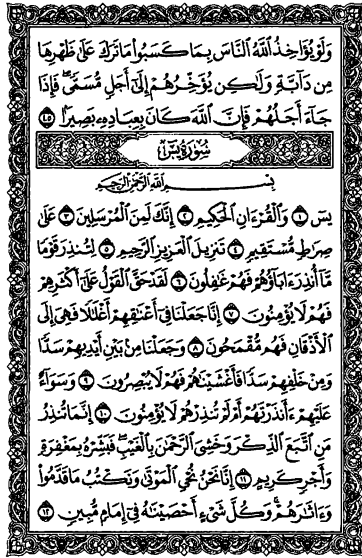 وَلَوْ يُؤَاخِذُ اللَّهُ النَّاسَ بِمَا كَسَبُوا مَا تَرَكَ عَلَىٰ ظَهْرِهَا
مِن دَآبَّةٍ وَلَٰكِن يُؤَخِّرُهُمْ إِلَىٰٓ أَجَلٍ مُّسَمًّى ۖ فَإِذَا
جَآءَ أَجَلُهُمْ فَإِنَّ اللَّهَ كَانَ بِعِبَادِهِ بَصِيرًا ٤٥
سُورَةُ يسٓ
بِسْمِ اللَّهِ الرَّحْمَٰنِ الرَّحِيمِ
يسٓ ١ وَالْقُرْءَانِ الْحَكِيمِ ٢ إِنَّكَ لَمِنَ الْمُرْسَلِينَ ٣ عَلَىٰ
صِرَاطٍ مُّسْتَقِيمٍ ٤ تَنزِيلَ الْعَزِيزِ الرَّحِيمِ ٥ لِتُنذِرَ قَوْمًا
مَّآ أُنذِرَ ءَابَآؤُهُمْ فَهُمْ غَٰفِلُونَ ٦ لَقَدْ حَقَّ الْقَوْلُ عَلَىٰٓ أَكْثَرِهِمْ
فَهُمْ لَا يُؤْمِنُونَ ٧ إِنَّا جَعَلْنَا فِىٓ أَعْنَٰقِهِمْ أَغْلَٰلًا فَهِىَ إِلَى
الْأَذْقَانِ فَهُم مُّقْمَحُونَ ٨ وَجَعَلْنَا مِنۢ بَيْنِ أَيْدِيهِمْ سَدًّا
وَمِنْ خَلْفِهِمْ سَدًّا فَأَغْشَيْنَٰهُمْ فَهُمْ لَا يُبْصِرُونَ ٩ وَسَوَآءٌ
عَلَيْهِمْ ءَأَنذَرْتَهُمْ أَمْ لَمْ تُنذِرْهُمْ لَا يُؤْمِنُونَ ١٠ إِنَّمَا تُنذِرُ
مَنِ اتَّبَعَ الذِّكْرَ وَخَشِىَ الرَّحْمَٰنَ بِالْغَيْبِ ۖ فَبَشِّرْهُ بِمَغْفِرَةٍ
وَأَجْرٍ كَرِيمٍ ١١ إِنَّا نَحْنُ نُحْىِ الْمَوْتَىٰ وَنَكْتُبُ مَا قَدَّمُوا
وَءَاثَٰرَهُمْ ۚ وَكُلَّ شَىْءٍ أَحْصَيْنَٰهُ فِىٓ إِمَامٍ مُّبِينٍ ١٢